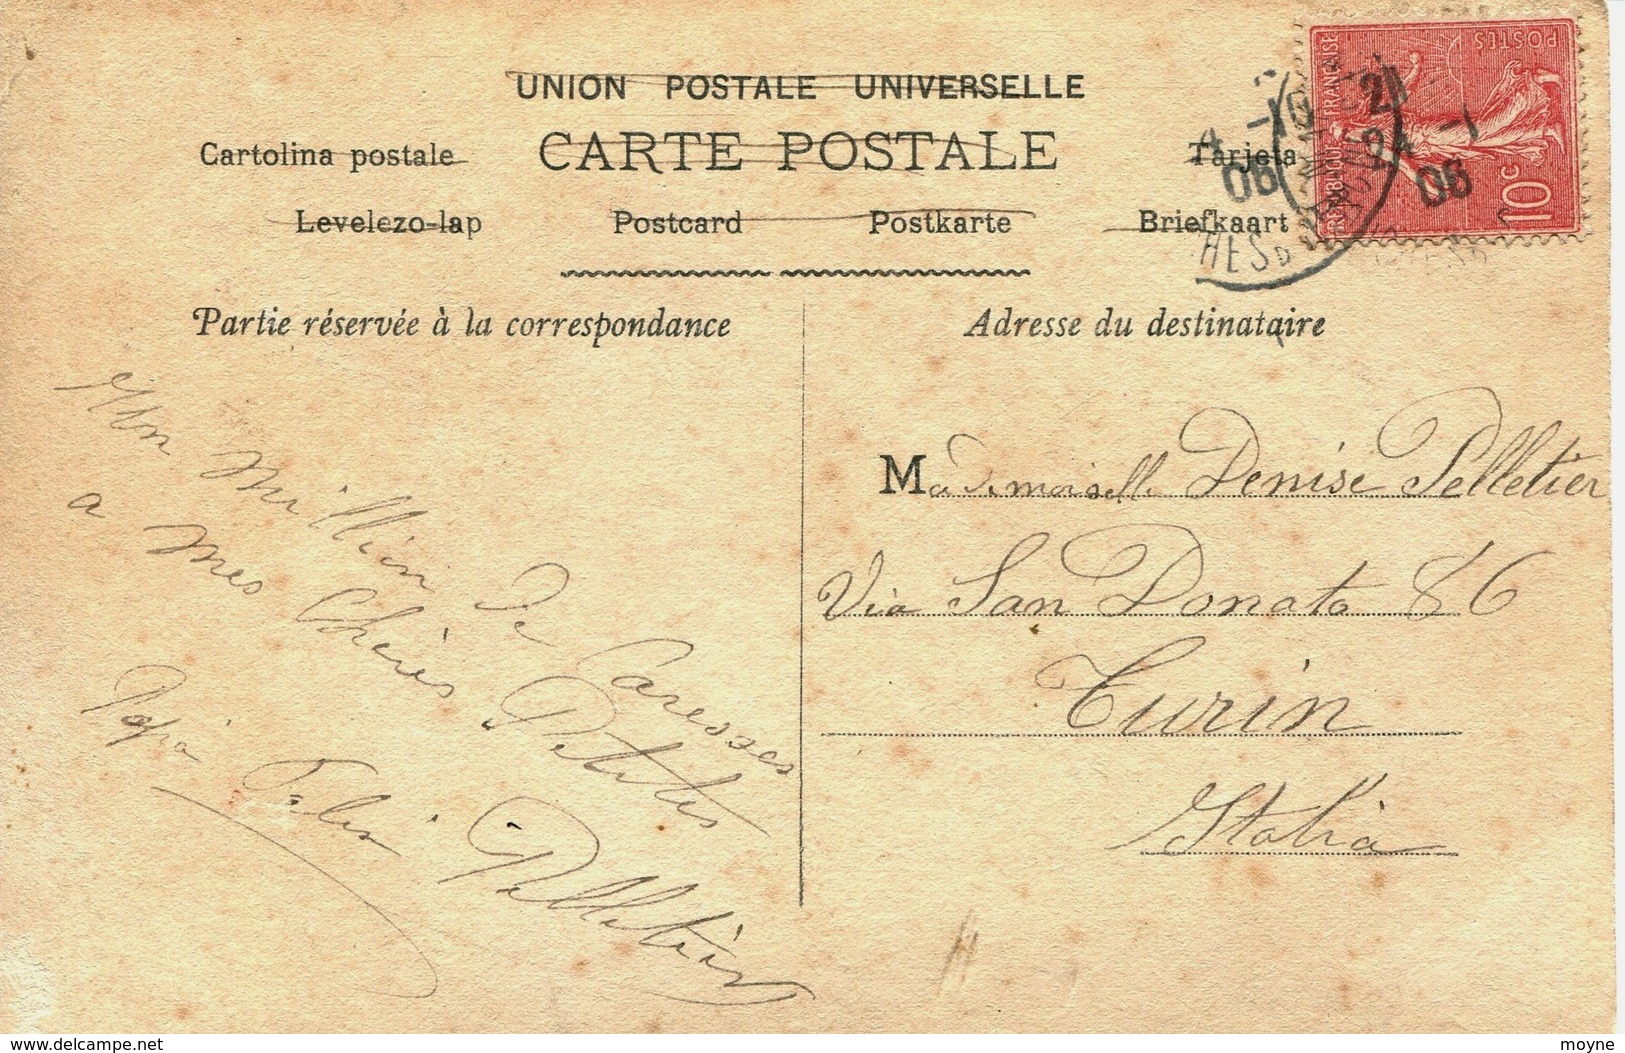 UNION POSTALE UNIVERSELLE
Cartolina postale CARTE POSTALE Tarjeta
Levelezo-lap Postcard Postkarte Briefkaart
RÉPUBLIQUE FRANÇAISE
POSTES
10c
24 -1
06
Partie réservée à la correspondance
Adresse du destinataire
Un Million De Caresses
a Mes Chères Petites
Papa Pelletier
Mademoiselle Denise Pelletier
Via San Donato 86
Turin
Italia
delcampe.net
moyne